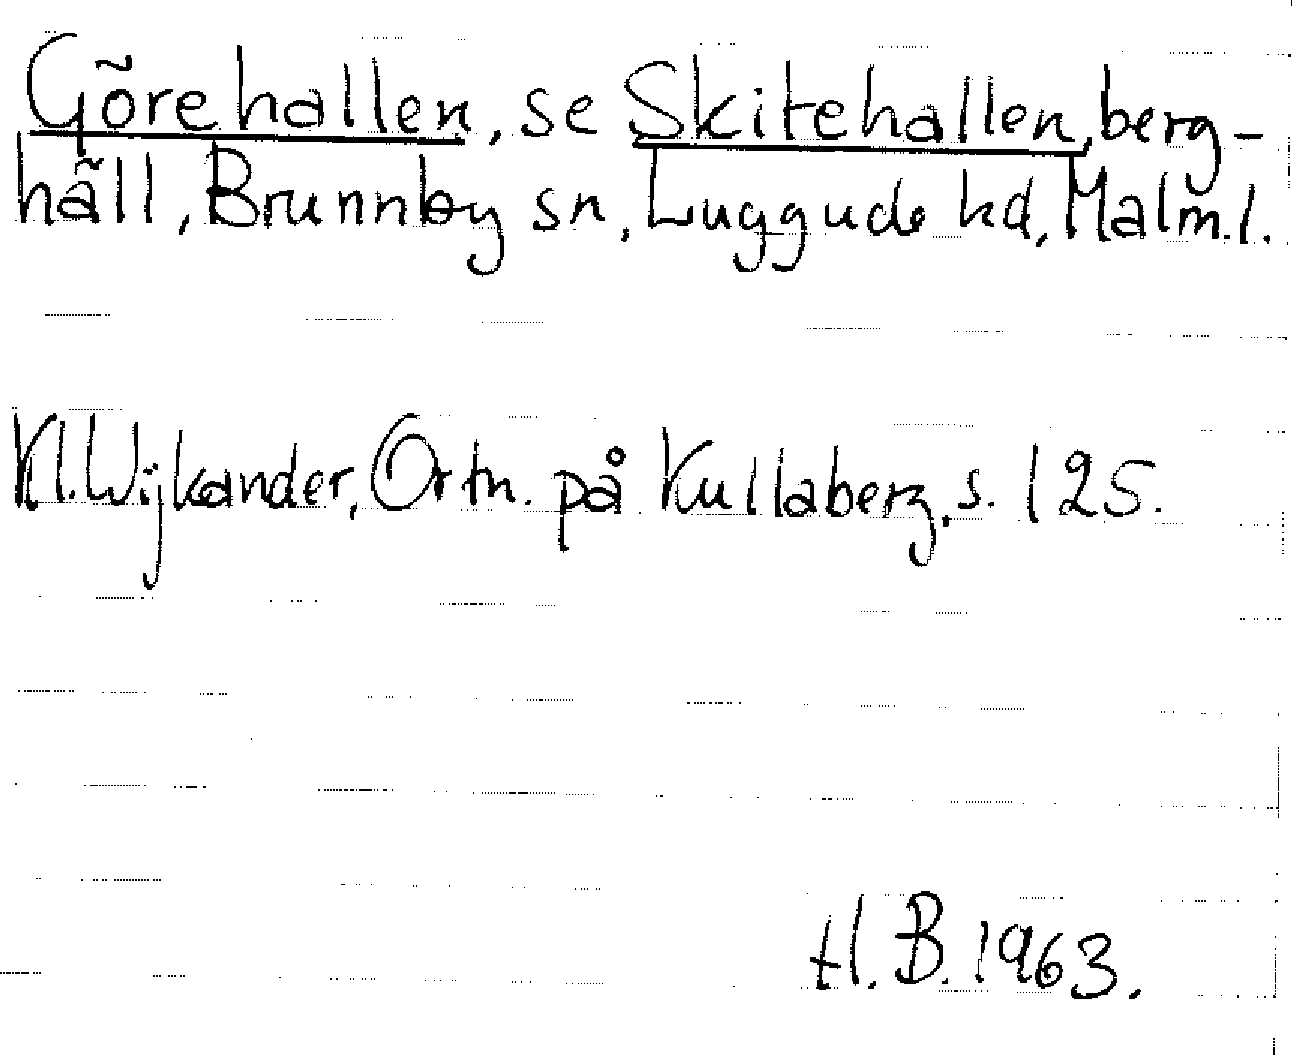 Görehallen, se Skitehallen, berg-
häll, Brunnby sn, Luggude hd, Malm.l.
Kl. Wijkander, Ortn. på Kullaberg, s. 125.
H. B. 1963.